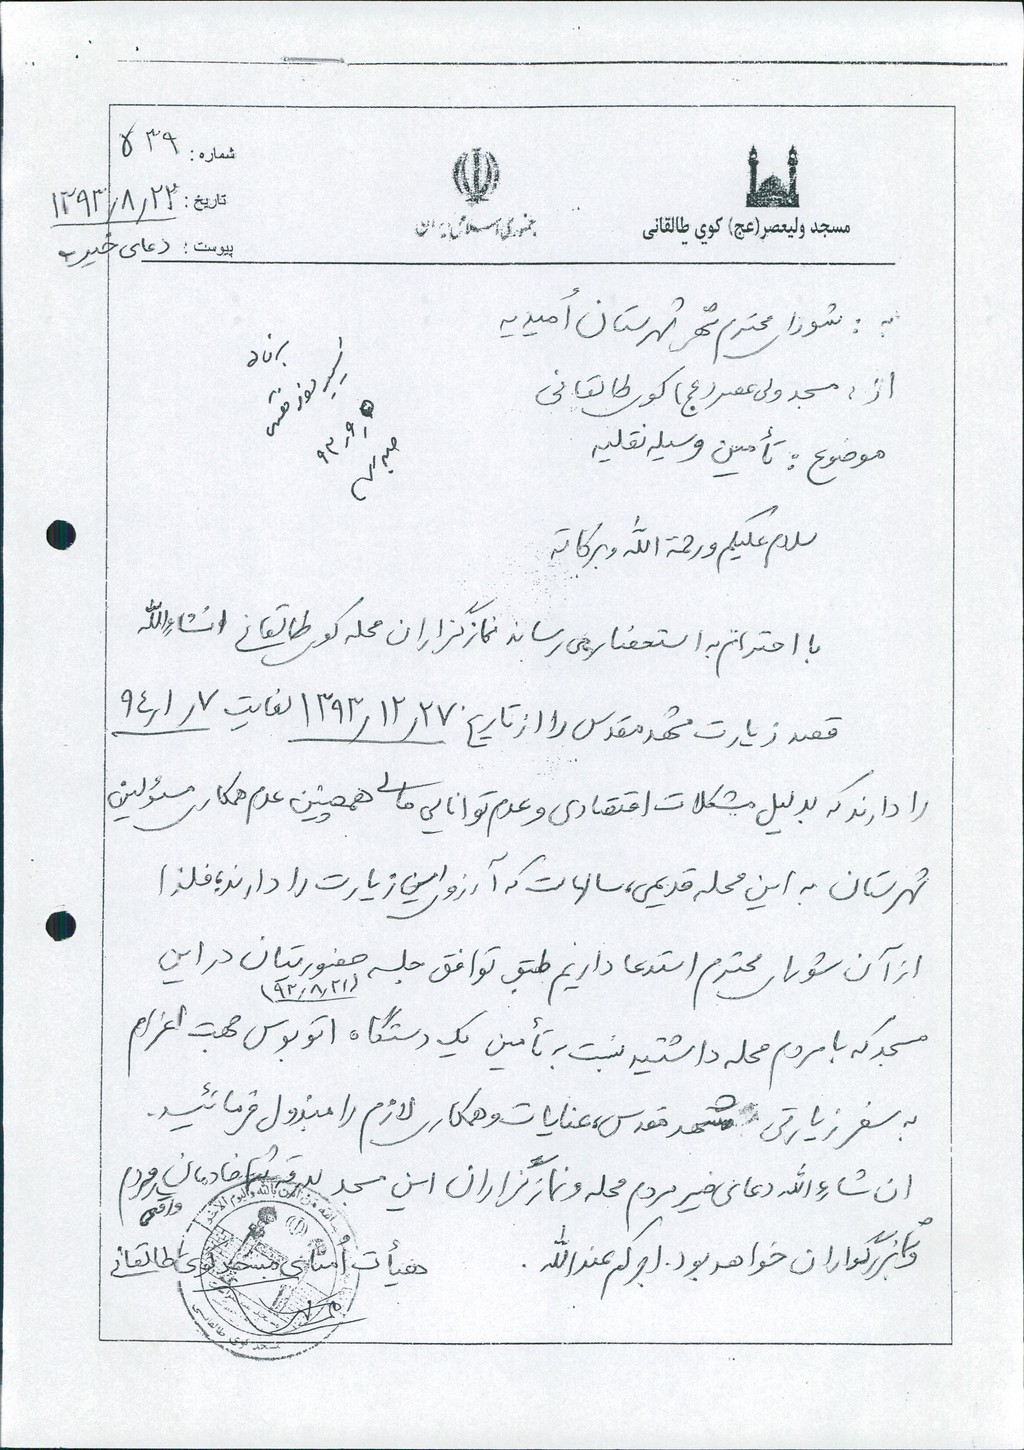 شماره : ۵۳۹
تاریخ : ۱۳۹۳/۸/۲۲
پیوست : دعای خیر
جمهوری اسلامی ایران
مسجد ولیعصر(عج) کوی طالقانی
به : شورای محترم شهر شهرستان اُمیدیه
از : مسجد ولی عصر (عج) کوی طالقانی
موضوع : تأمین وسیله نقلیه
۹۳/۹/
سلام علیکم و رحمة الله و برکاته
با احترام به استحضار می رساند نمازگزاران محله کوی طالقانی انشاءالله
قصد زیارت مشهد مقدس را از تاریخ ۱۳۹۳/۱۲/۲۷ لغایت ۹۴/۱/۷
را دارند که بدلیل مشکلات اقتصادی و عدم توانایی مالی همچنین عدم همکاری مسئولین
شهرستان به این محله قدیمی، سالهاست که آرزوی این زیارت را دارند، فلذا
از آن شورای محترم استدعا داریم طبق توافق جلسه حضوریتان در این
(۹۳/۸/۲۱)
مسجد که با مردم محله داشتید نسبت به تأمین یک دستگاه اتوبوس جهت اعزام
به سفر زیارتی مشهد مقدس، عنایات و همکاری لازم را مبذول فرمائید.
ان شاءالله دعای خیر مردم محله و نمازگزاران این مسجد بدرقه خادمان مردم
واقعی
بزرگواران خواهد بود. اجرکم عندالله.
هیأت اُمنای مسجد کوی طالقانی
مسجد کوی طالقانی